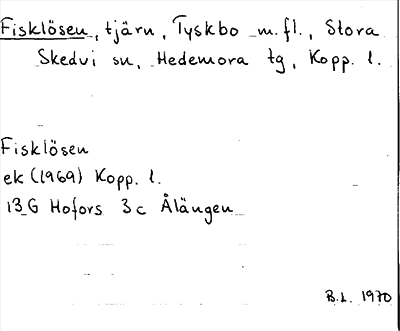 Fisklösen, tjärn, Tyskbo m.fl., Stora
Skedvi sn, Hedemora tg, Kopp. l.
Fisklösen
ek (1969) Kopp. l.
13 G Hofors 3 c Ålängen
B.L. 1970